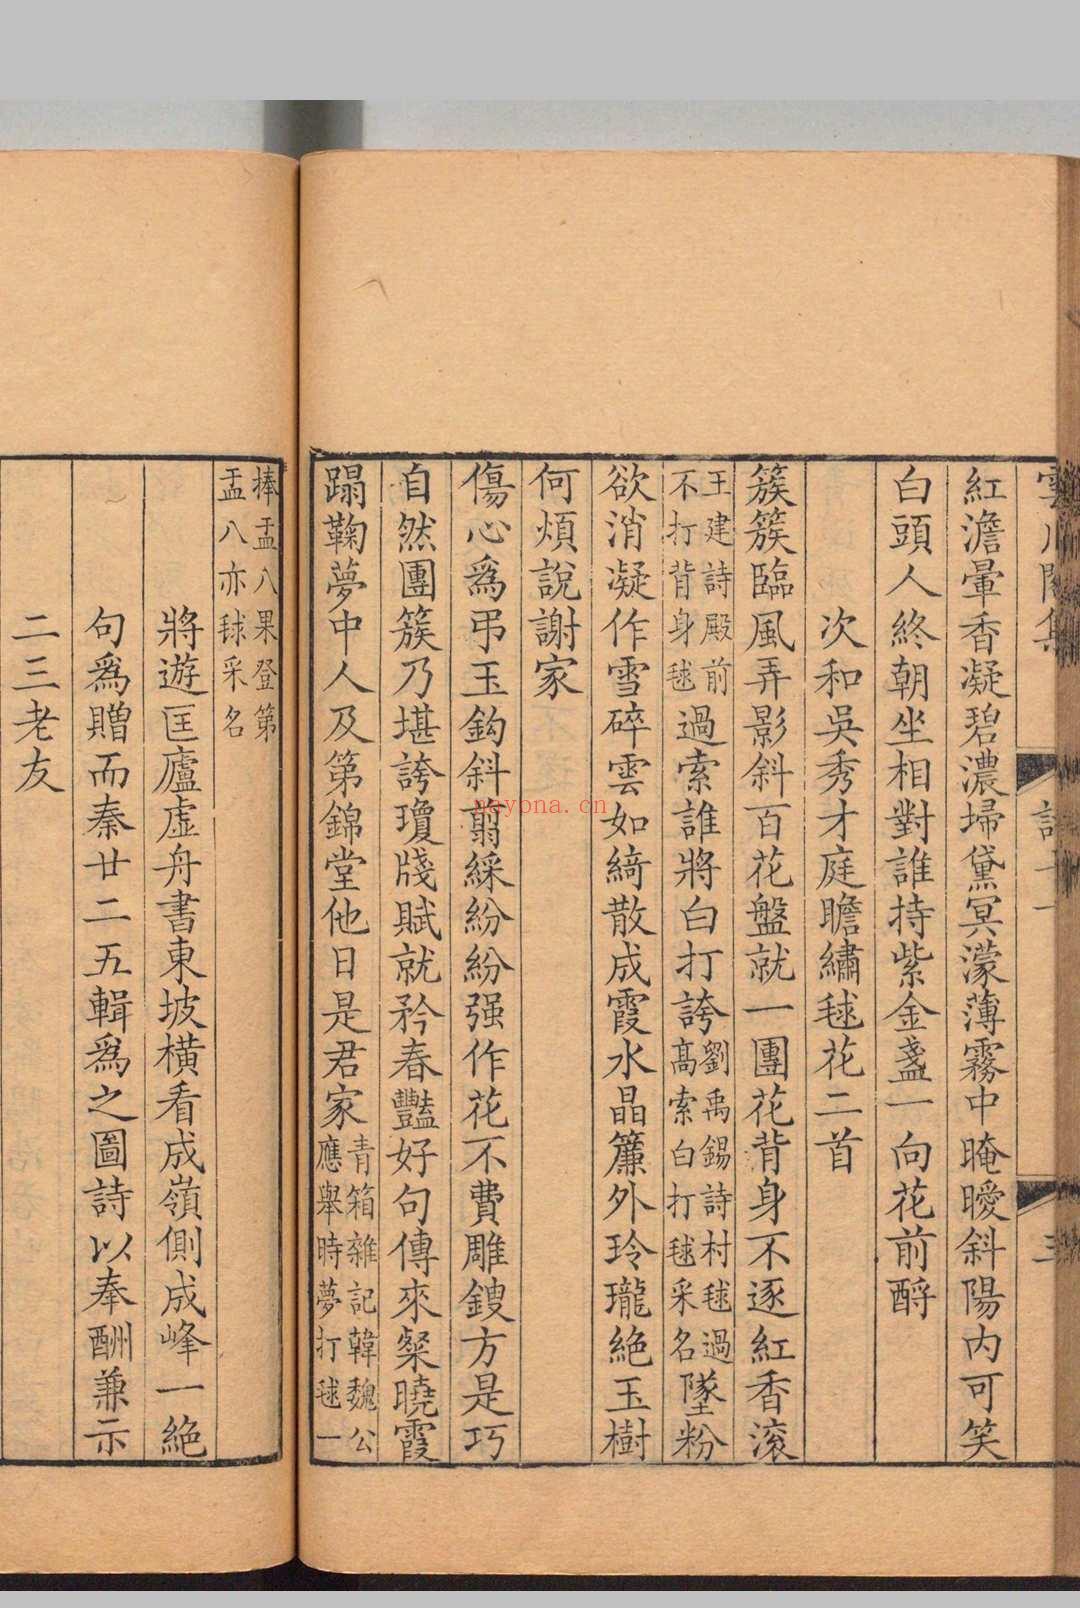 紅澹暈香凝碧濃埽黛冥濛薄霧中晻曖斜陽内可笑
白頭人終朝坐相對誰持紫金盞一向花前酹
次和吳秀才庭瞻繡毬花二首
簇簇臨風弄影斜百花盤就一團花背身不逐紅香滚
王建詩殿前
不打背身毬
過索誰將白打誇
劉禹錫詩村毬過
髙索白打毬采名
墜粉
欲消凝作雪碎雲如綺散成霞水晶簾外玲瓏絶玉樹
何煩說謝家
傷心爲弔玉鈎斜翦綵紛紛强作花不費雕鎪方是巧
自然團簇乃堪誇瓊牋賦就矜春豔好句傳來粲曉霞
蹋鞠夢中人及第錦堂他日是君家
青箱雜記韓魏公
應舉時夢打毬一
捧盂八果登第
盂八亦毬采名
將遊匡廬虚舟書東坡橫看成嶺側成峰一絶
句爲贈而秦廿二五輯爲之圖詩以奉酬兼示
二三老友
nayona.cn